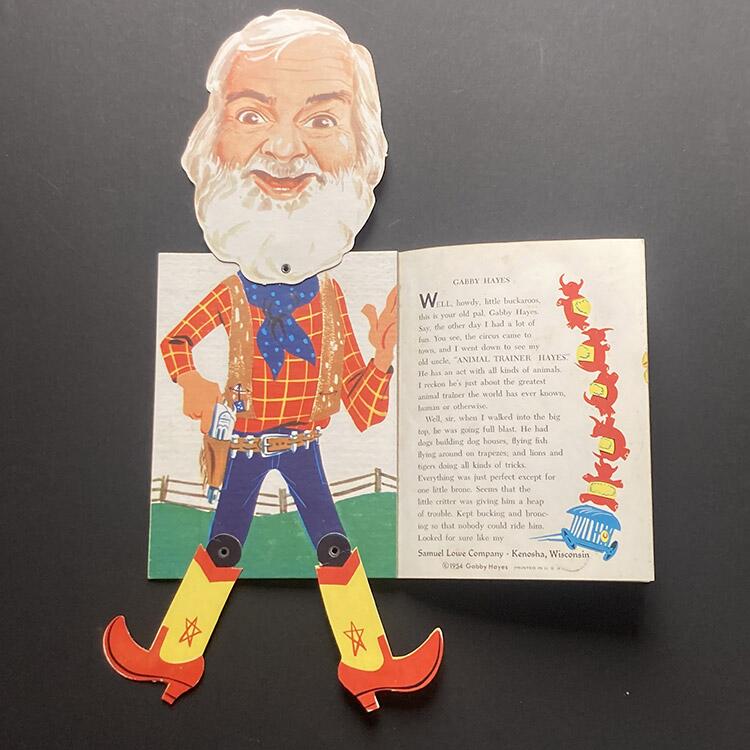 GABBY HAYES
WELL, howdy, little buckaroos,
this is your old pal, Gabby Hayes.
Say, the other day I had a lot of
fun. You see, the circus came to
town, and I went down to see my
old uncle, "ANIMAL TRAINER HAYES."
He has an act with all kinds of animals.
I reckon he's just about the greatest
animal trainer the world has ever known,
human or otherwise.
Well, sir, when I walked into the big
top, he was going full blast. He had
dogs building dog houses, flying fish
flying around on trapezes; and lions and
tigers doing all kinds of tricks.
Everything was just perfect except for
one little bronc. Seems that the
little critter was giving him a heap
of trouble. Kept bucking and bronc-
ing so that nobody could ride him.
Looked for sure like my
Samuel Lowe Company - Kenosha, Wisconsin
©1954 Gabby Hayes PRINTED IN U. S. A.